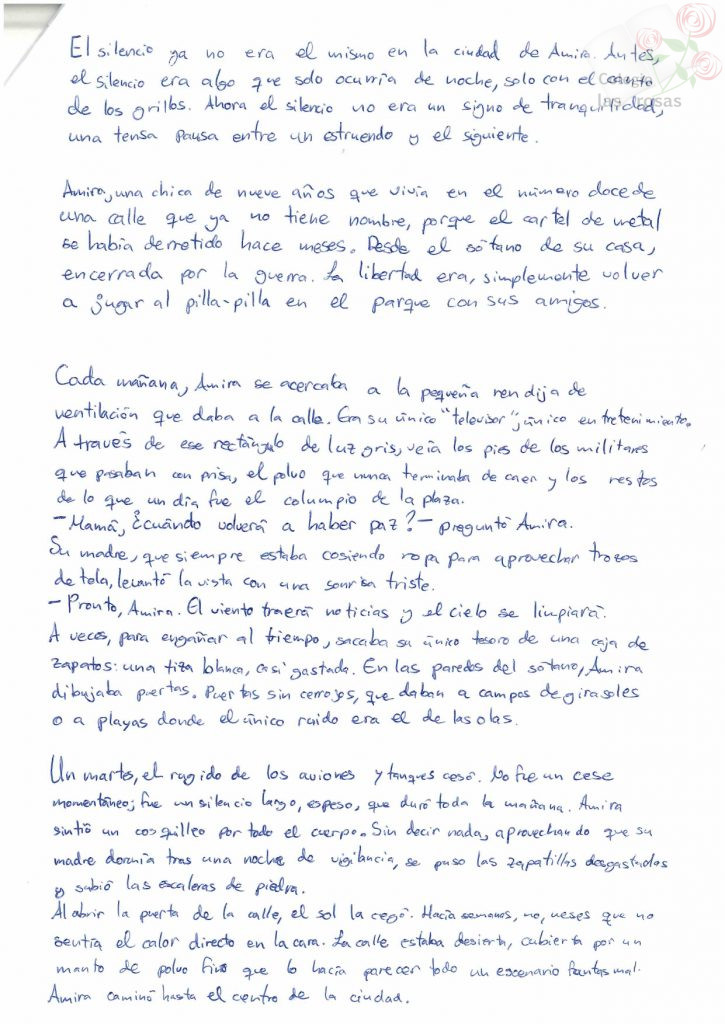 El silencio ya no era el mismo en la ciudad de Amira. Antes,
el silencio era algo que solo ocurría de noche, solo con el canto
de los grillos. Ahora el silencio no era un signo de tranquilidad,
una tensa pausa entre un estruendo y el siguiente.
Amira, una chica de nueve años que vivía en el número doce de
una calle que ya no tiene nombre, porque el cartel de metal
se había derretido hace meses. Desde el sótano de su casa,
encerrada por la guerra. La libertad era, simplemente volver
a jugar al pilla-pilla en el parque con sus amigos.
Cada mañana, Amira se acercaba a la pequeña rendija de
ventilación que daba a la calle. Era su único "televisor", único entretenimiento.
A través de ese rectángulo de luz gris, veía los pies de los militares
que pasaban con prisa, el polvo que nunca terminaba de caer y los restos
de lo que un día fue el columpio de la plaza.
- Mamá, ¿cuándo volverá a haber paz? - preguntó Amira.
Su madre, que siempre estaba cosiendo ropa para aprovechar trozos
de tela, levantó la vista con una sonrisa triste.
- Pronto, Amira. El viento traerá noticias y el cielo se limpiará.
A veces, para engañar al tiempo, sacaba su único tesoro de una caja de
zapatos: una tiza blanca, casi gastada. En las paredes del sótano, Amira
dibujaba puertas. Puertas sin cerrojos, que daban a campos de girasoles
o a playas donde el único ruido era el de las olas.
Un martes, el rugido de los aviones y tanques cesó. No fue un cese
momentáneo; fue un silencio largo, espeso, que duró toda la mañana. Amira
sintió un cosquilleo por todo el cuerpo. Sin decir nada, aprovechando que su
madre dormía tras una noche de vigilancia, se puso las zapatillas desgastadas
y subió las escaleras de piedra.
Al abrir la puerta de la calle, el sol la cegó. Hacía semanas, no, meses que no
sentía el calor directo en la cara. La calle estaba desierta, cubierta por un
manto de polvo fino que lo hacía parecer todo un escenario fantasmal.
Amira caminó hasta el centro de la ciudad.